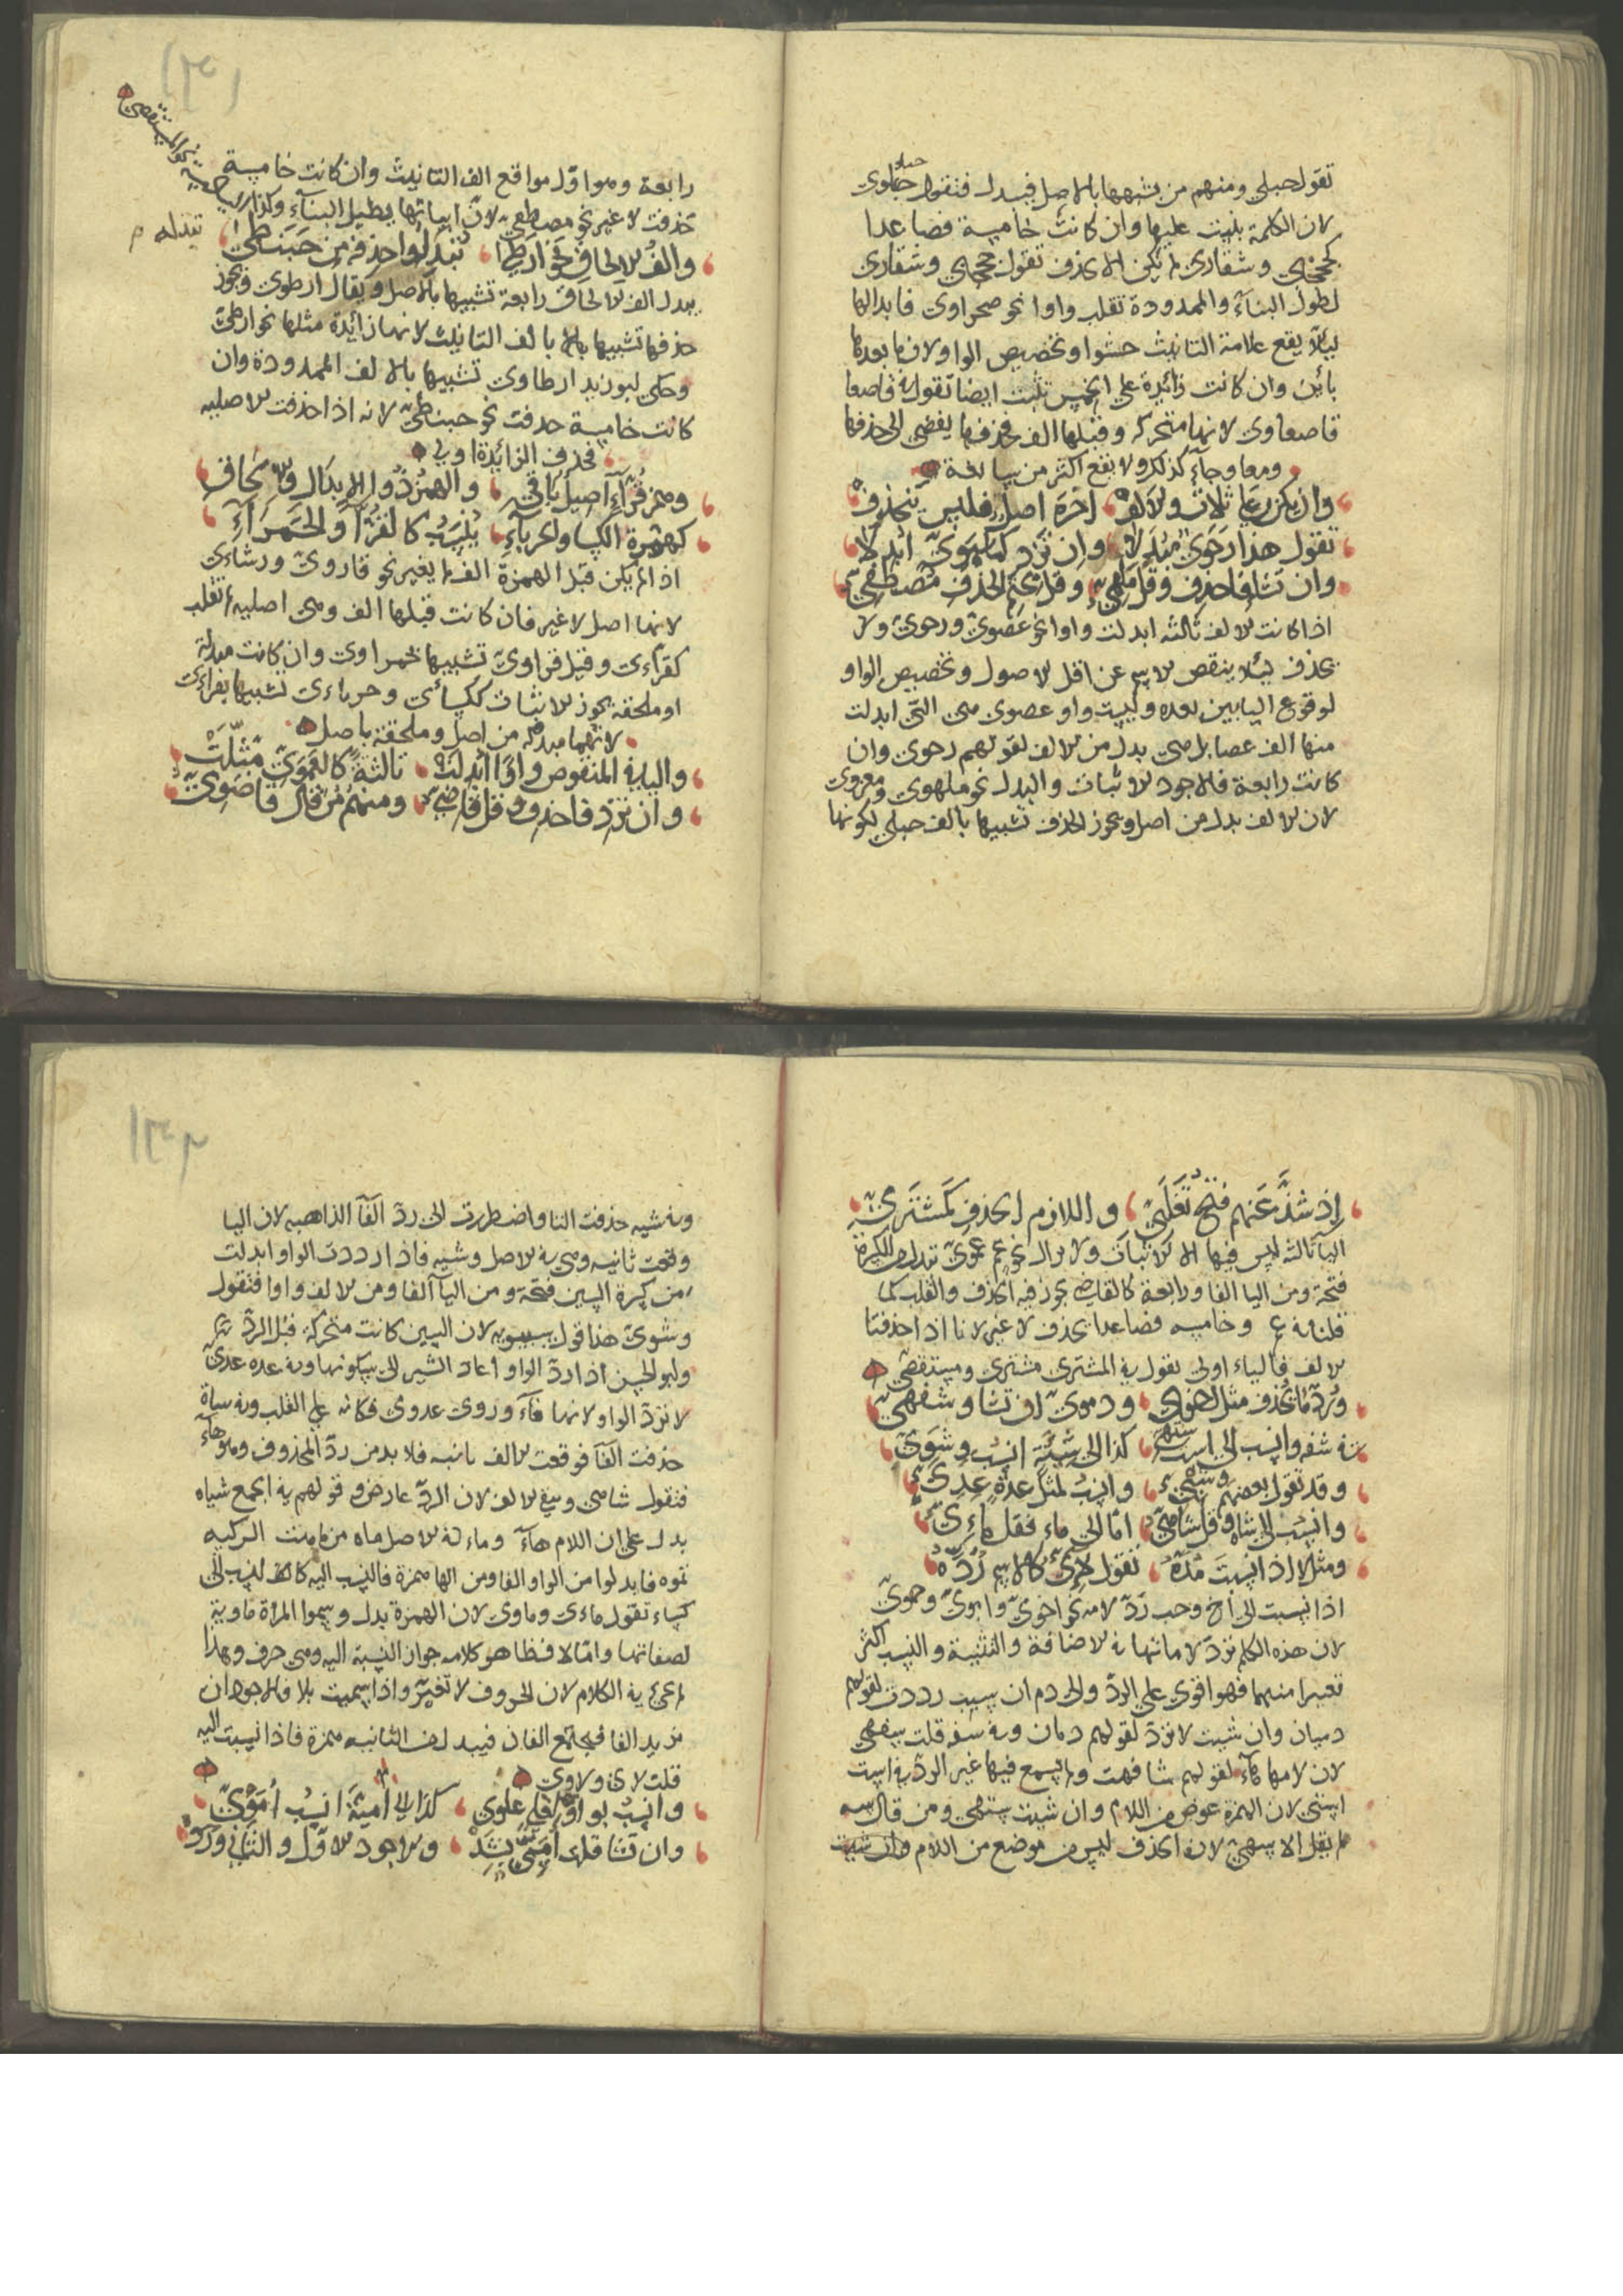 تقول حبلي ومنهم من يشبهها بالاصل فيبدل فتقول حبلوي
لان الكلمة بنيت عليها وان كانت خامسة فصاعدا
كحججبى وشقارى لم يكن الا الحذف تقول حججبى وشقارى
لطول البناء والممدودة تقلب واوا نحو صحراوى فابدالها
ليلا يقع علامة التانيث حشوا وتخصيص الواو لان ما بعدها
يائين وان كانت زائدة على الخمس تثبت ايضا تقول في قاصعا
قاصعاوى لانها متحركه وقبلها الف فحذفها يفضي الى حذفها
ومعا وجاء كذلك ولا يقع اكثر من سالخة
وان يكن رباعى ثلاث والالف اخره اصل فليس ينحذف
تقول هذا رحوى مبدلا وان تزد كملهوى ابدلا
وان تشا فاحذف وقل ملهى وقل بحتم الحذف مصطفى
اذا كانت الالف ثالثه ابدلت واوا نحو عصوى ورحوى ولا
يحذف ليلا ينقص الاسم عن اقل الاصول وتخصيص الواو
لوقوع اليايين بعده وليست واو عصوى هي التى ابدلت
منها الف عصا بل هي بدل من الالف لقولهم رحوى وان
كانت رابعة فالاجود الاثبات والبدل نحو ملهوى ومغزوى
لان الالف بدل من اصل ويجوز الحذف تشبيها بالف حبلى لكونها
رابعة وهو اول مواقع الف التانيث وان كانت خامسة
حذفت لا غير نحو مصطفى لان اثباتها يطيل البناء وكذا السادسة
نحو المستقصى
والف الالحاق نحو ارطا تبدل واحذفه من حبنطى
تبدله م
يبدل الف الالحاق رابعة تشبيها بالاصل ويقال ارطوى ويجوز
حذفها تشبيها بالف التانيث لانها زائدة مثلها نحو ارطى
وحكى ابو زيد ارطاوى تشبيها بالالف الممدودة وان
كانت خامسة حذفت نحو حبنطى لانه اذا حذفت الاصليه
فحذف الزائدة اولى
وهمز قراء اصيل باقى والهمز ذو الابدال والالحاق
كهمزة الكسا والحرباء ينسب كالقراء والحمراء
اذا لم يكن قبل الهمزة الف لم يغير نحو قاروى ورشاءى
لانها اصل لا غير فان كانت قبلها الف وهي اصليه لم تقلب
كقراءى وقيل قراوى تشبيها بحمراوى وان كانت مبدلة
او ملحقة يجوز الاثبات ككسائى وحرباءى تشبيها بقراءى
لانهما مبدله من اصل وملحقة باصل
والياء في المنقوص واوا ابدلت ثالثة كالعموى مثلت
وان تزد فاحذف وقل قاضى ومنهم من قال قاضوى
اذ شذ عنهم فتح تغلبى واللازم الحذف كمشترى
اليا ثالثه ليس فيها الا الاثبات والابدال نحو عم عموى تبدل من الكسرة
فتحة ومن اليا الفا ورابعة كالقاضى يجوز فيه الحذف والقلب كما
قلنا في ع وخامسه فصاعدا يحذف لا غير لانا اذا حذفنا
الالف فالياء اولى تقول في المشترى مشترى ومستقصى
ورد ما يحذف مثل اخوى ودموى ان تشا وشفهى
في شفه وانسب الى است ستهى كذا الى شية انسب وشوى
وقد تقول بعضهم وشيى وانسب لمثل عدة عدى
وانسب الى شاه وقل شاهى اما الى ماء فقل ماءى
ومثل لا اذا نسبت مده تقول لاءى كالاسم رده
اذا نسبت الى اخ وجب رد لامه نحو اخوى وابوى وحموى
لان هذه الكلم ترد لاماتها في الاضافة والتثنية والنسب اكثر
تغييرا منهما فهو اقوى على الرد والى دم ان شيت رددت لقولهم
دميان وان شيت لا ترد لقولهم دمان وفي شفه قلت شفهى
لان لامها هاء لقولهم شافهت ولم يسمع فيها غير الرد في است
استى لان الهمزة عوض من اللام وان شيت ستهى ومن قال سه
لم يقل الا سهى لان الحذف ليس من موضع من اللام وان شيت
وفي شيه حذفت التا واضطررت الى رد الفا الذاهبه لان اليا
وقعت ثانيه وهي في الاصل وشيه فاذا رددت الواو ابدلت
من كسرة السين فتحة ومن اليا الفا ومن الالف واوا فتقول
وشوى هذا قول سيبويه لان السين كانت متحركة قبل الرد
وابو الحسن اذا رد الواو اعاد الشين الى سكونها وفي عده عدى
لا ترد الواو لانها فاء وروى عدوى فكانه على القلب وفي شاة
حذفت الفا فوقعت الالف ثانيه فلا بد من رد المحذوف وهو هاء
فتقول شاهى وبقى الالف لان الرد عارض وقولهم في الجمع شياه
يدل على ان اللام هاء وماء في الاصل ماه من ماهت الركيه
تموه فابدلوا من الواو الفا ومن الها همزة فالنسب اليه كالنسب الى
كساء تقول ماءى وماوى لان الهمزة بدل وسموا المراة ماوية
لصفائها واما لا فظاهر كلامه جواز النسبة اليه وهي حرف وهذا
لم يجئ في الكلام لان الحروف لا تغير واذا سميت بلا فالاجود ان
تزيد الفا فيجتمع الفان فيبدل من الثانيه همزة فاذا نسبت اليه
قلت لاءى ولاوى
وانسب بواو في على علوى كذا الى امية انسب اموى
وان تشا قلت اميى يشد والاجود الاول والثاني ورد